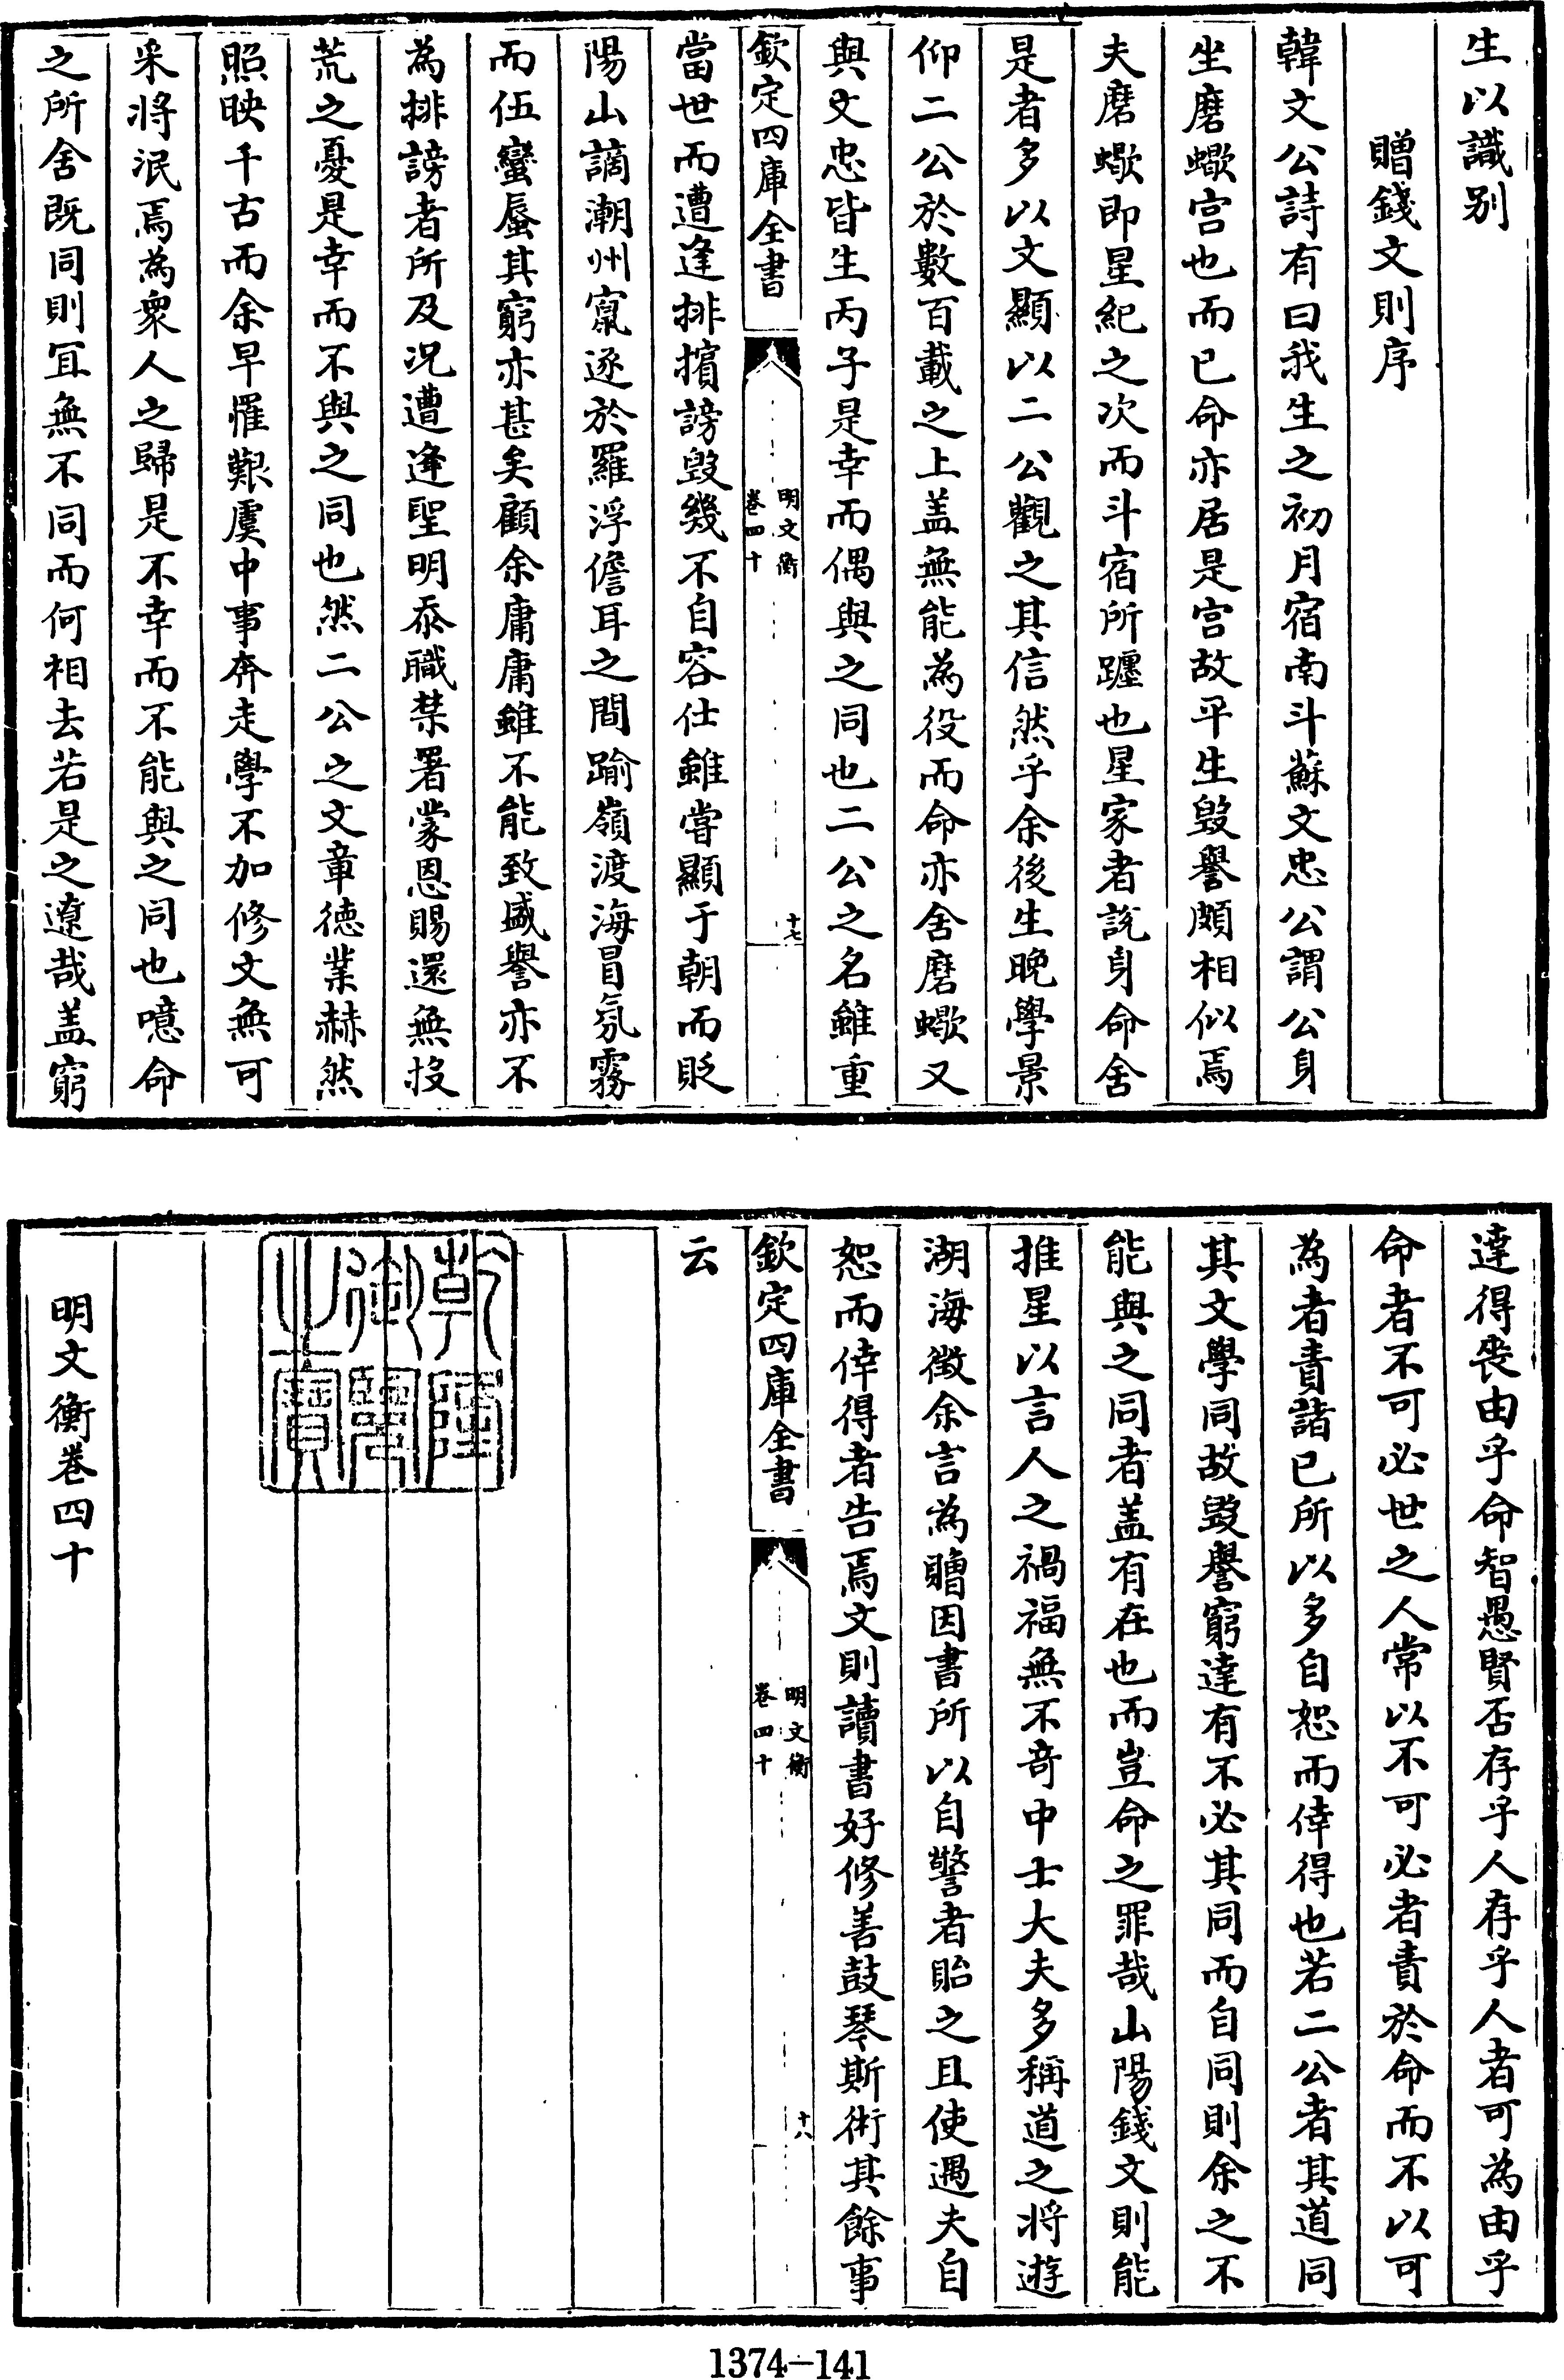 生以識别
贈錢文則序
韓文公詩有曰我生之初月宿南斗蘇文忠公謂公身
坐磨蠍宫也而已命亦居是宫故平生毁譽頗相似焉
夫磨蠍即星紀之次而斗宿所躔也星家者説身命舍
是者多以文顯以二公觀之其信然乎余後生晚學景
仰二公於數百載之上盖無能為役而命亦舍磨蠍又
與文忠皆生丙子是幸而偶與之同也二公之名雖重
欽定四庫全書
明文衡
卷四十
十七
當世而遭逢排擯謗毁幾不自容仕雖嘗顯于朝而貶
陽山謫潮州竄逐於羅浮儋耳之間踰嶺渡海冒氛霧
而伍蠻蜑其窮亦甚矣顧余庸庸雖不能致盛譽亦不
為排謗者所及况遭逢聖明忝職禁署蒙恩賜還無投
荒之憂是幸而不與之同也然二公之文章徳業赫然
照映千古而余早罹艱虞中事奔走學不加修文無可
采将泯焉為衆人之歸是不幸而不能與之同也噫命
之所舍既同則宜無不同而何相去若是之遼哉盖窮
達得喪由乎命智愚賢否存乎人存乎人者可為由乎
命者不可必世之人常以不可必者責於命而不以可
為者責諸已所以多自恕而倖得也若二公者其道同
其文學同故毁譽窮達有不必其同而自同則余之不
能與之同者盖有在也而豈命之罪哉山陽錢文則能
推星以言人之禍福無不奇中士大夫多稱道之将遊
湖海徴余言為贈因書所以自警者貽之且使遇夫自
恕而倖得者告焉文則讀書好修善鼓琴斯術其餘事
欽定四庫全書
明文衡
卷四十
十八
云
乾隆御覽之寶
明文衡卷四十
1374-141